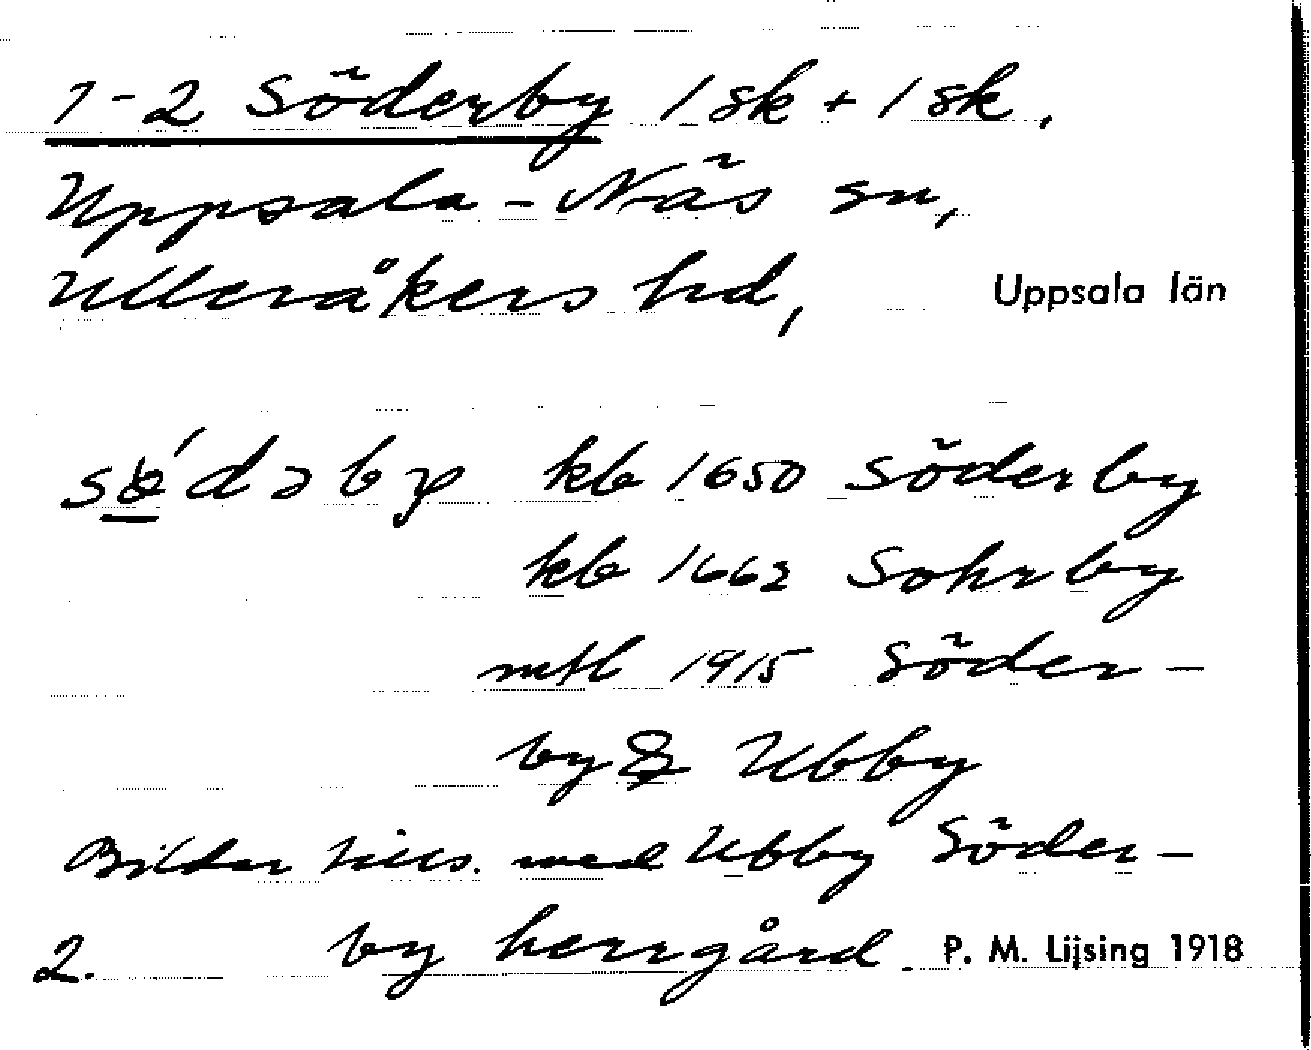 1-2 Söderby 1 sk + 1 sk,
Uppsala-Näs sn,
Ulleråkers hd, Uppsala län
sǿdəby kb 1650 Söderby
kb 1662 Sohrby
mtl 1915 Söder-
by & Ubby
Bildar tills. med Ubby Söder-
2. by herrgård P. M. Lijsing 1918